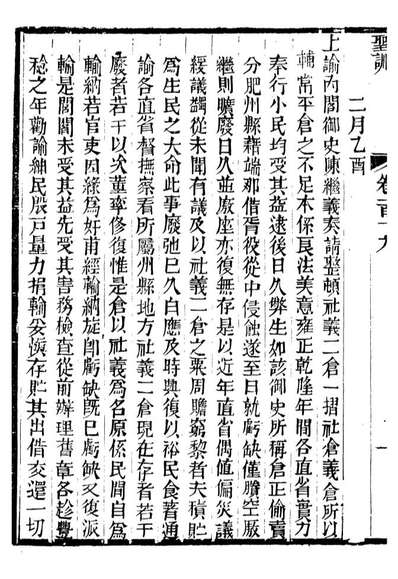 聖訓 卷百十九 一
二月乙酉
上諭內閣御史陳繼義奏請整頓社義二倉一摺社倉義倉所以
輔常平倉之不足本係良法美意雍正乾隆年間各直省實力
奉行小民均受其益迨後日久弊生如該御史所稱倉正偷賣
分肥州縣藉端那借胥役從中侵蝕遂至日就虧缺僅賸空廒
繼則曠廢日久並廒座亦復無存是以近年直省偶值偏災議
緩議蠲從未聞有議及以社義二倉之粟周贍窮黎者夫積貯
為生民之大命此事廢弛已久自應及時興復以裕民食著通
諭各直省督撫察看所屬州縣地方社義二倉現在存者若干
廢者若干以次董率修復惟是倉以社義為名原係民間自為
輸納若官吏因緣為奸甫經輸納旋即虧缺既已虧缺又復派
輸是閭閻未受其益先受其害務檢查從前辦理舊章各趁豐
稔之年勸諭紳民殷戶量力捐輸妥慎存貯其出借交還一切